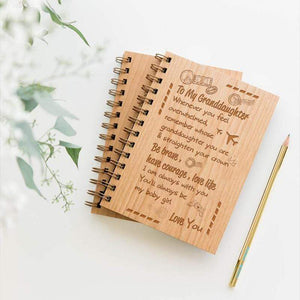 To My Granddaughter
Whenever you feel
overwhelmed,
remember whose
granddaughter you are
& straighten your crown
Be brave,
have courage, love life.
I am always with you
You'll always be
my baby girl
Love You